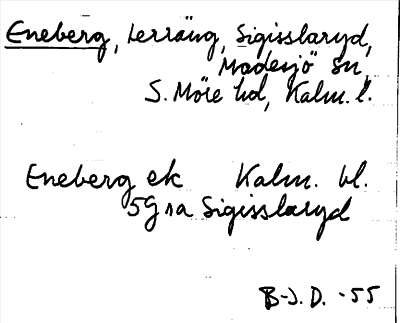 Eneberg, terräng, Sigisslaryd,
Madesjö sn,
S. Möre hd, Kalm. l.
Eneberg ek Kalm. bl.
5G ra Sigisslaryd
B-J. D. -55